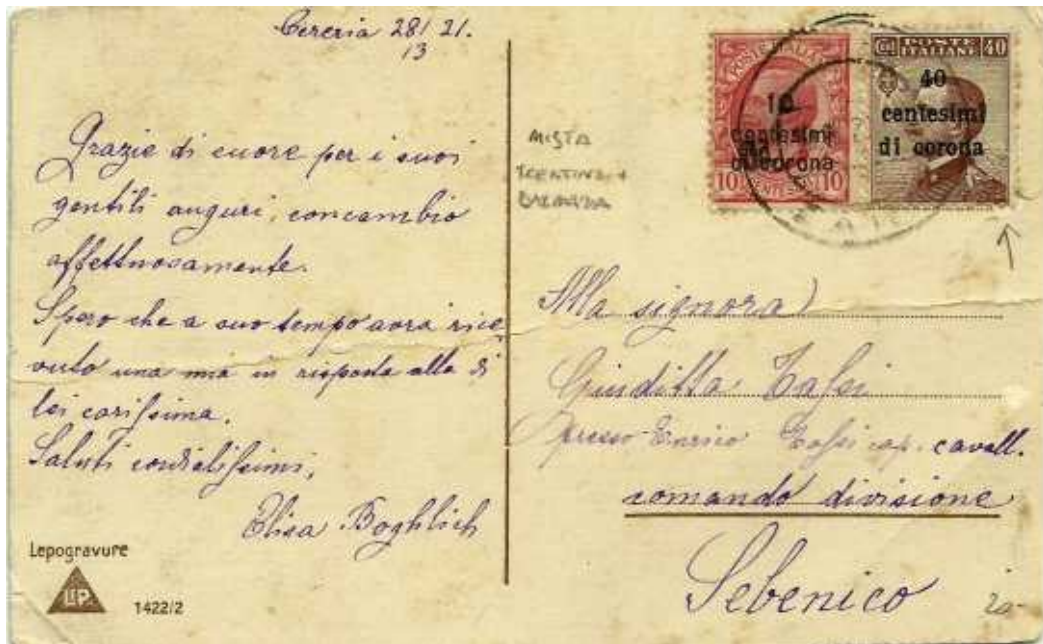 28/21.
13
Grazie di cuore per i suoi
gentili auguri, concambio
affettuosamente.
Spero che a suo tempo avra rice
vuto una mia in risposta alla di
lei carissima.
Saluti cordialissimi,
Elisa Boghlich
Lepogravure
LP.
1422/2
MISTA
TRENTINO +
DALMAZIA
POSTE ITALIANE
10
centesimi
di corona
10 CENTESIMI 10
POSTE
ITALIANE
40
40
centesimi
di corona
Alla signora
Giuditta
presso Enrico cap. cavall.
comando divisione
Sebenico